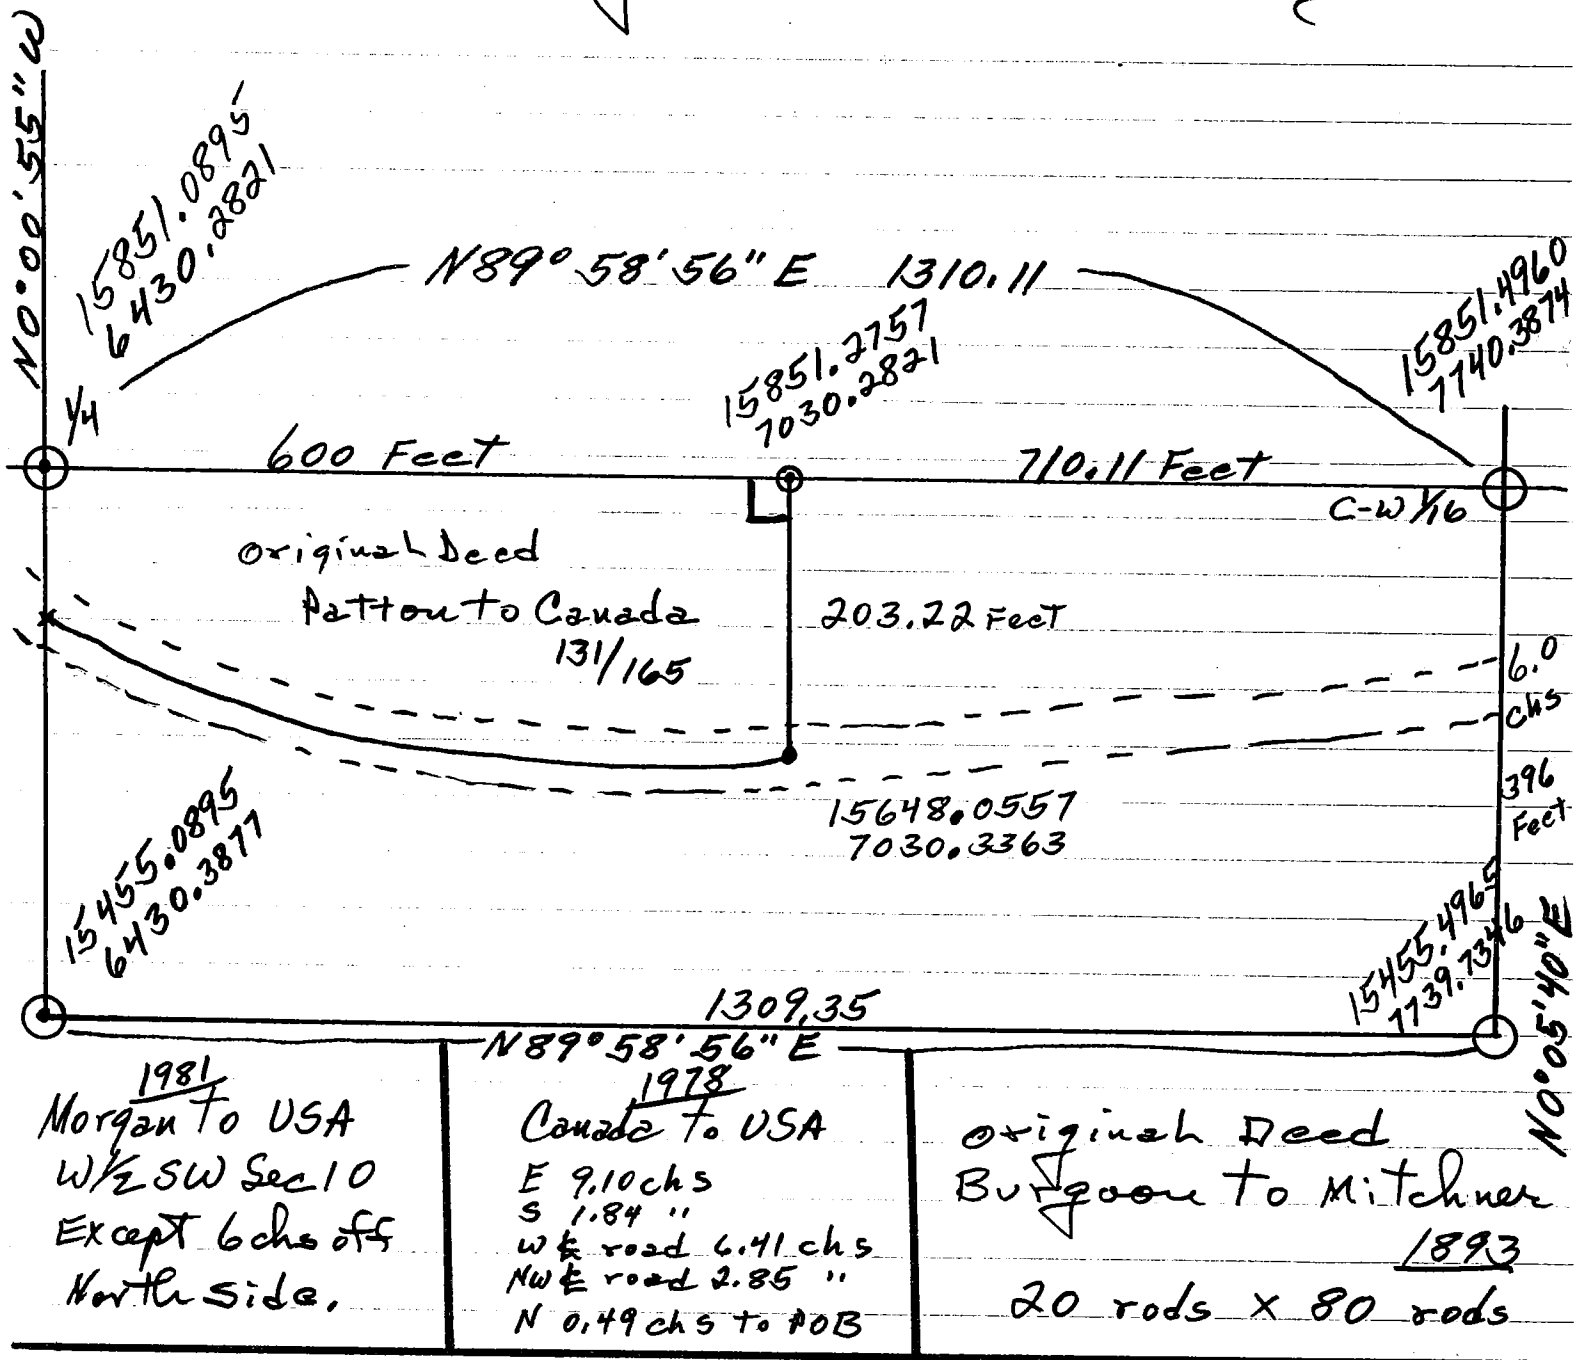 N0°00'55" W
15851.0895
6430.2821
N89°58'56" E 1310.11
15851.2757
7030.2821
15851.4960
7740.3874
1/4
600 Feet
710.11 Feet
C-W 1/16
original Deed
Patton to Canada
131/165
203.22 Feet
6.0
chs
396
Feet
15648.0557
7030.3363
15455.0895
6430.3877
15455.4965
7739.7346
N0°05'40" E
1309.35
N89°58'56" E
1981
Morgan To USA
W 1/2 SW Sec 10
Except 6 chs off
North side.
1978
Canada To USA
E 9.10 chs
S 1.84 "
W ℄ road 6.41 chs
NW ℄ road 2.85 "
N 0.49 chs to POB
original Deed
Burgoon To Mitchner
1893
20 rods x 80 rods